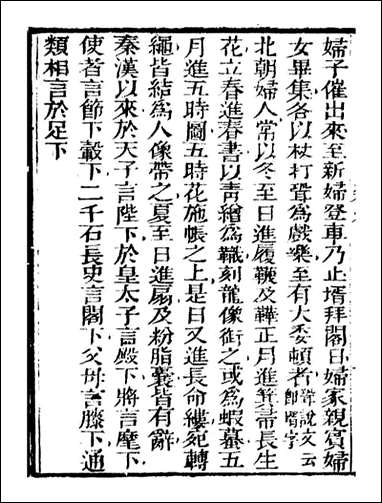 婦子催出來至新婦登車乃止壻拜閤日婦家親賓婦
女畢集各以杖打聟為戲樂至有大委頓者聟說文云即壻字
北朝婦人常以冬至日進履韈及鞾正月進箕帚長生
花立春進春書以青繒為幟刻龍像銜之或為蝦蟇五
月進五時圖五時花施帳之上是日又進長命縷宛轉
繩皆結為人像帶之夏至日進扇及粉脂囊皆有辭
秦漢以來於天子言陛下於皇太子言殿下將言麾下
使者言節下轂下二千石長史言閤下父母言膝下通
類相言於足下